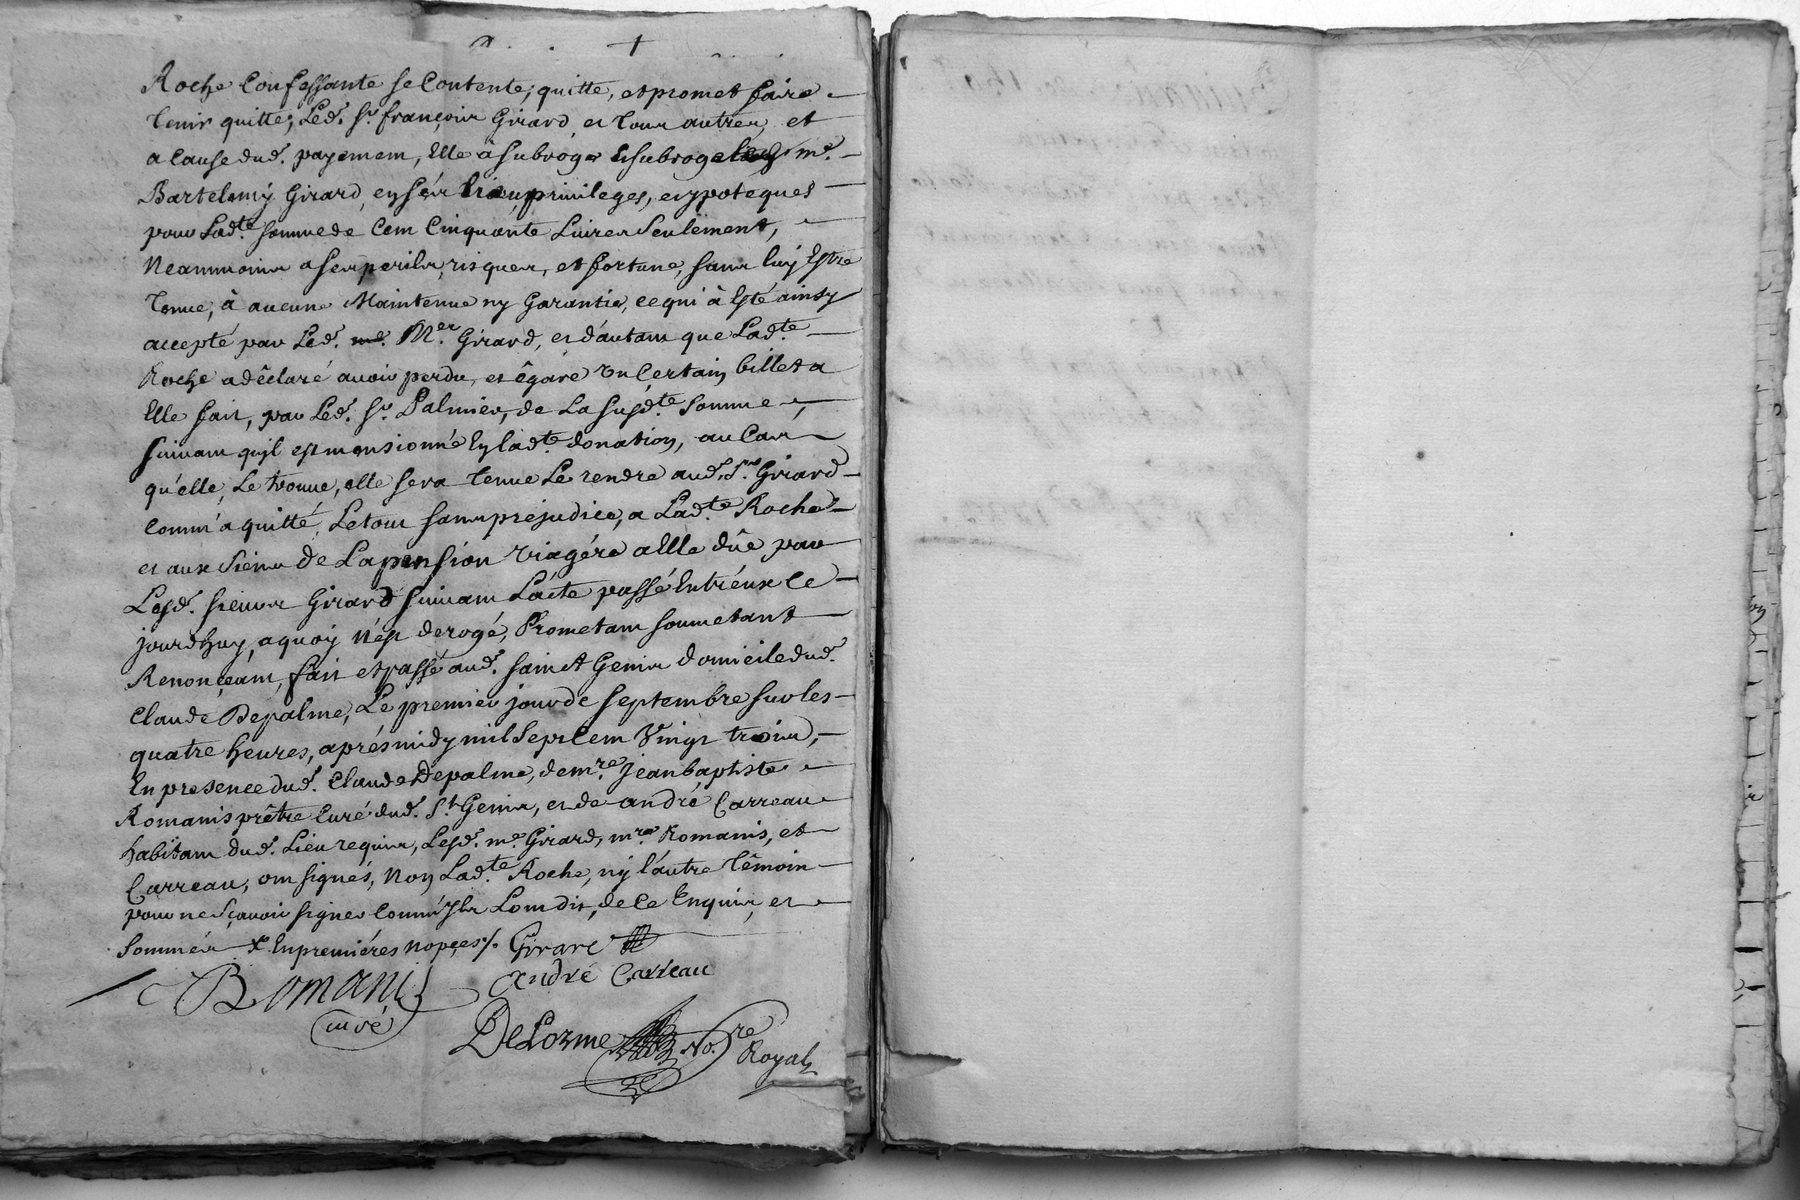 Roche Confessante se Contente, quitte, et promet faire
tenir quitte, Led. Sr. françois Girard, et tous autres, et
a Cause dud. payement, Elle à subrogé & subroge me.
Bartelemy Girard, en ses lieu, privileges, et ypoteques
pour Ladte. somme de Cent Cinquante Livres Seulement,
Neammoins a ses perils, risques, et fortune, sans luy Estre
tenue, à aucune Maintenue ny Garantie, ce qui à Esté ainsy
accepté par Led. Mer. Girard, et d'autant que Ladte.
Roche a dêclaré avoir perdu, et êgaré un Certain billet a
Elle fait, par Led. Sr. Palmier, de La susdte. Somme,
suivant qu'il est mensionné En ladte. donation, au Cas
qu'elle, Le trouve, elle sera tenue Le rendre aud. Sr. Girard
Comm' a quitté, Le tout sans prejudice, a Ladte. Roche
et aux Siens de La pension viagére a Elle dûe par
Lesd. sieurs Girard suivant L'acte passé Entr'eux Ce
jourd'huy, a quoy n'est derogé, Prometant soumetant
Renonçeant, fait et passé aud. sainct Genis domicile dud.
Claude Depalme, Le premier jour de septembre sur les
quatre heures, aprés midy mil Sept Cent Vingt trois,
En presence dud. Claude Depalme, de mre. jean baptiste
Romanis prêtre Curé dud. St. Genis, et de andré Carreau
habitant dud. Lieu requis, Lesd. me. Girard, mre. Romanis, et
Carreau, ont signés, Non Ladte. Roche, ny l'autre têmoin
pour ne sçavoir signer Comm' Ils L'ont dit, de Ce Enquis, et
Sommés x En premiéres nopçes ./. Girard
Romanis André Carreau
curé
DeLorme No.re
Royal